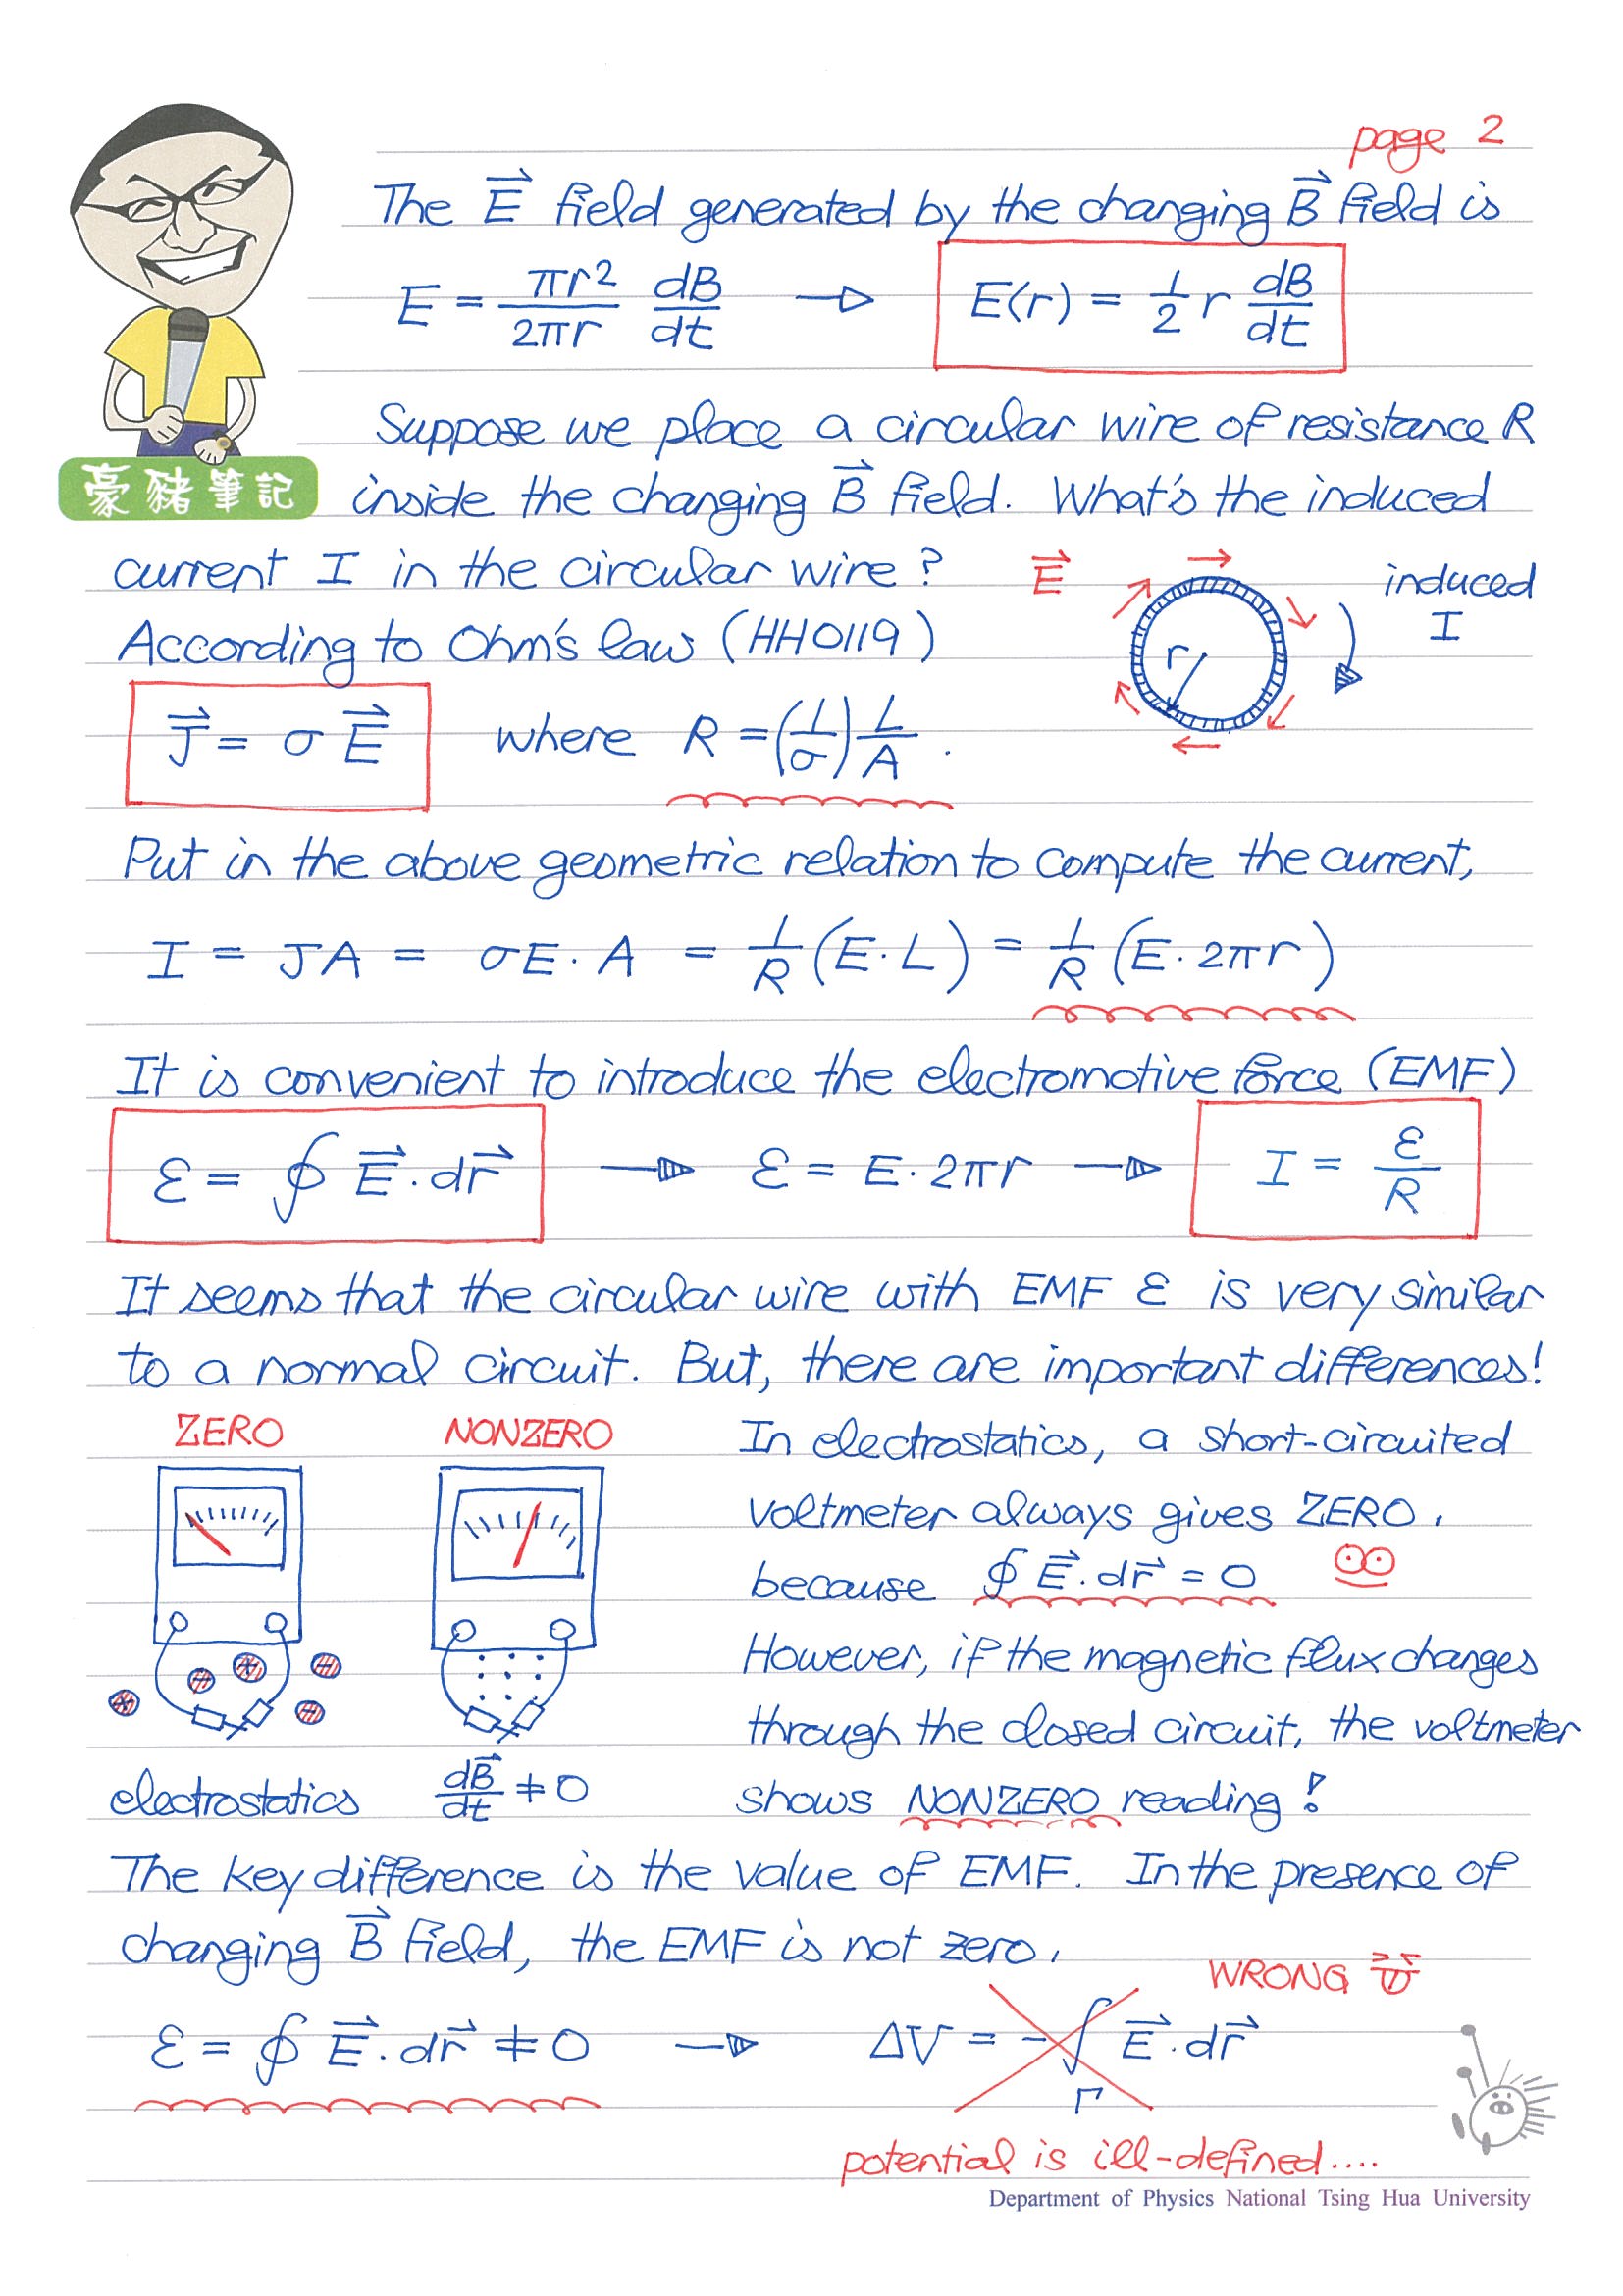 page 2
The E⃗ field generated by the changing B⃗ field is
E = πr²/2πr dB/dt → E(r) = 1/2 r dB/dt
Suppose we place a circular wire of resistance R
豪豬筆記
inside the changing B⃗ field. What's the induced
current I in the circular wire?
E⃗
induced
I
r
According to Ohm's law (HH0119)
J⃗ = σE⃗ where R = (1/σ) L/A.
Put in the above geometric relation to compute the current,
I = JA = σE·A = 1/R (E·L) = 1/R (E·2πr)
It is convenient to introduce the electromotive force (EMF)
ℰ = ∮ E⃗·dr⃗ → ℰ = E·2πr → I = ℰ/R
It seems that the circular wire with EMF ℰ is very similar
to a normal circuit. But, there are important differences!
ZERO
NONZERO
+ - + - -
electrostatics
dB⃗/dt ≠ 0
In electrostatics, a short-circuited
voltmeter always gives ZERO.
because ∮ E⃗·dr⃗ = 0
However, if the magnetic flux changes
through the closed circuit, the voltmeter
shows NONZERO reading!
The key difference is the value of EMF. In the presence of
changing B⃗ field, the EMF is not zero.
WRONG
ℰ = ∮ E⃗·dr⃗ ≠ 0 → ΔV = -∫Γ E⃗·dr⃗
potential is ill-defined....
Department of Physics National Tsing Hua University